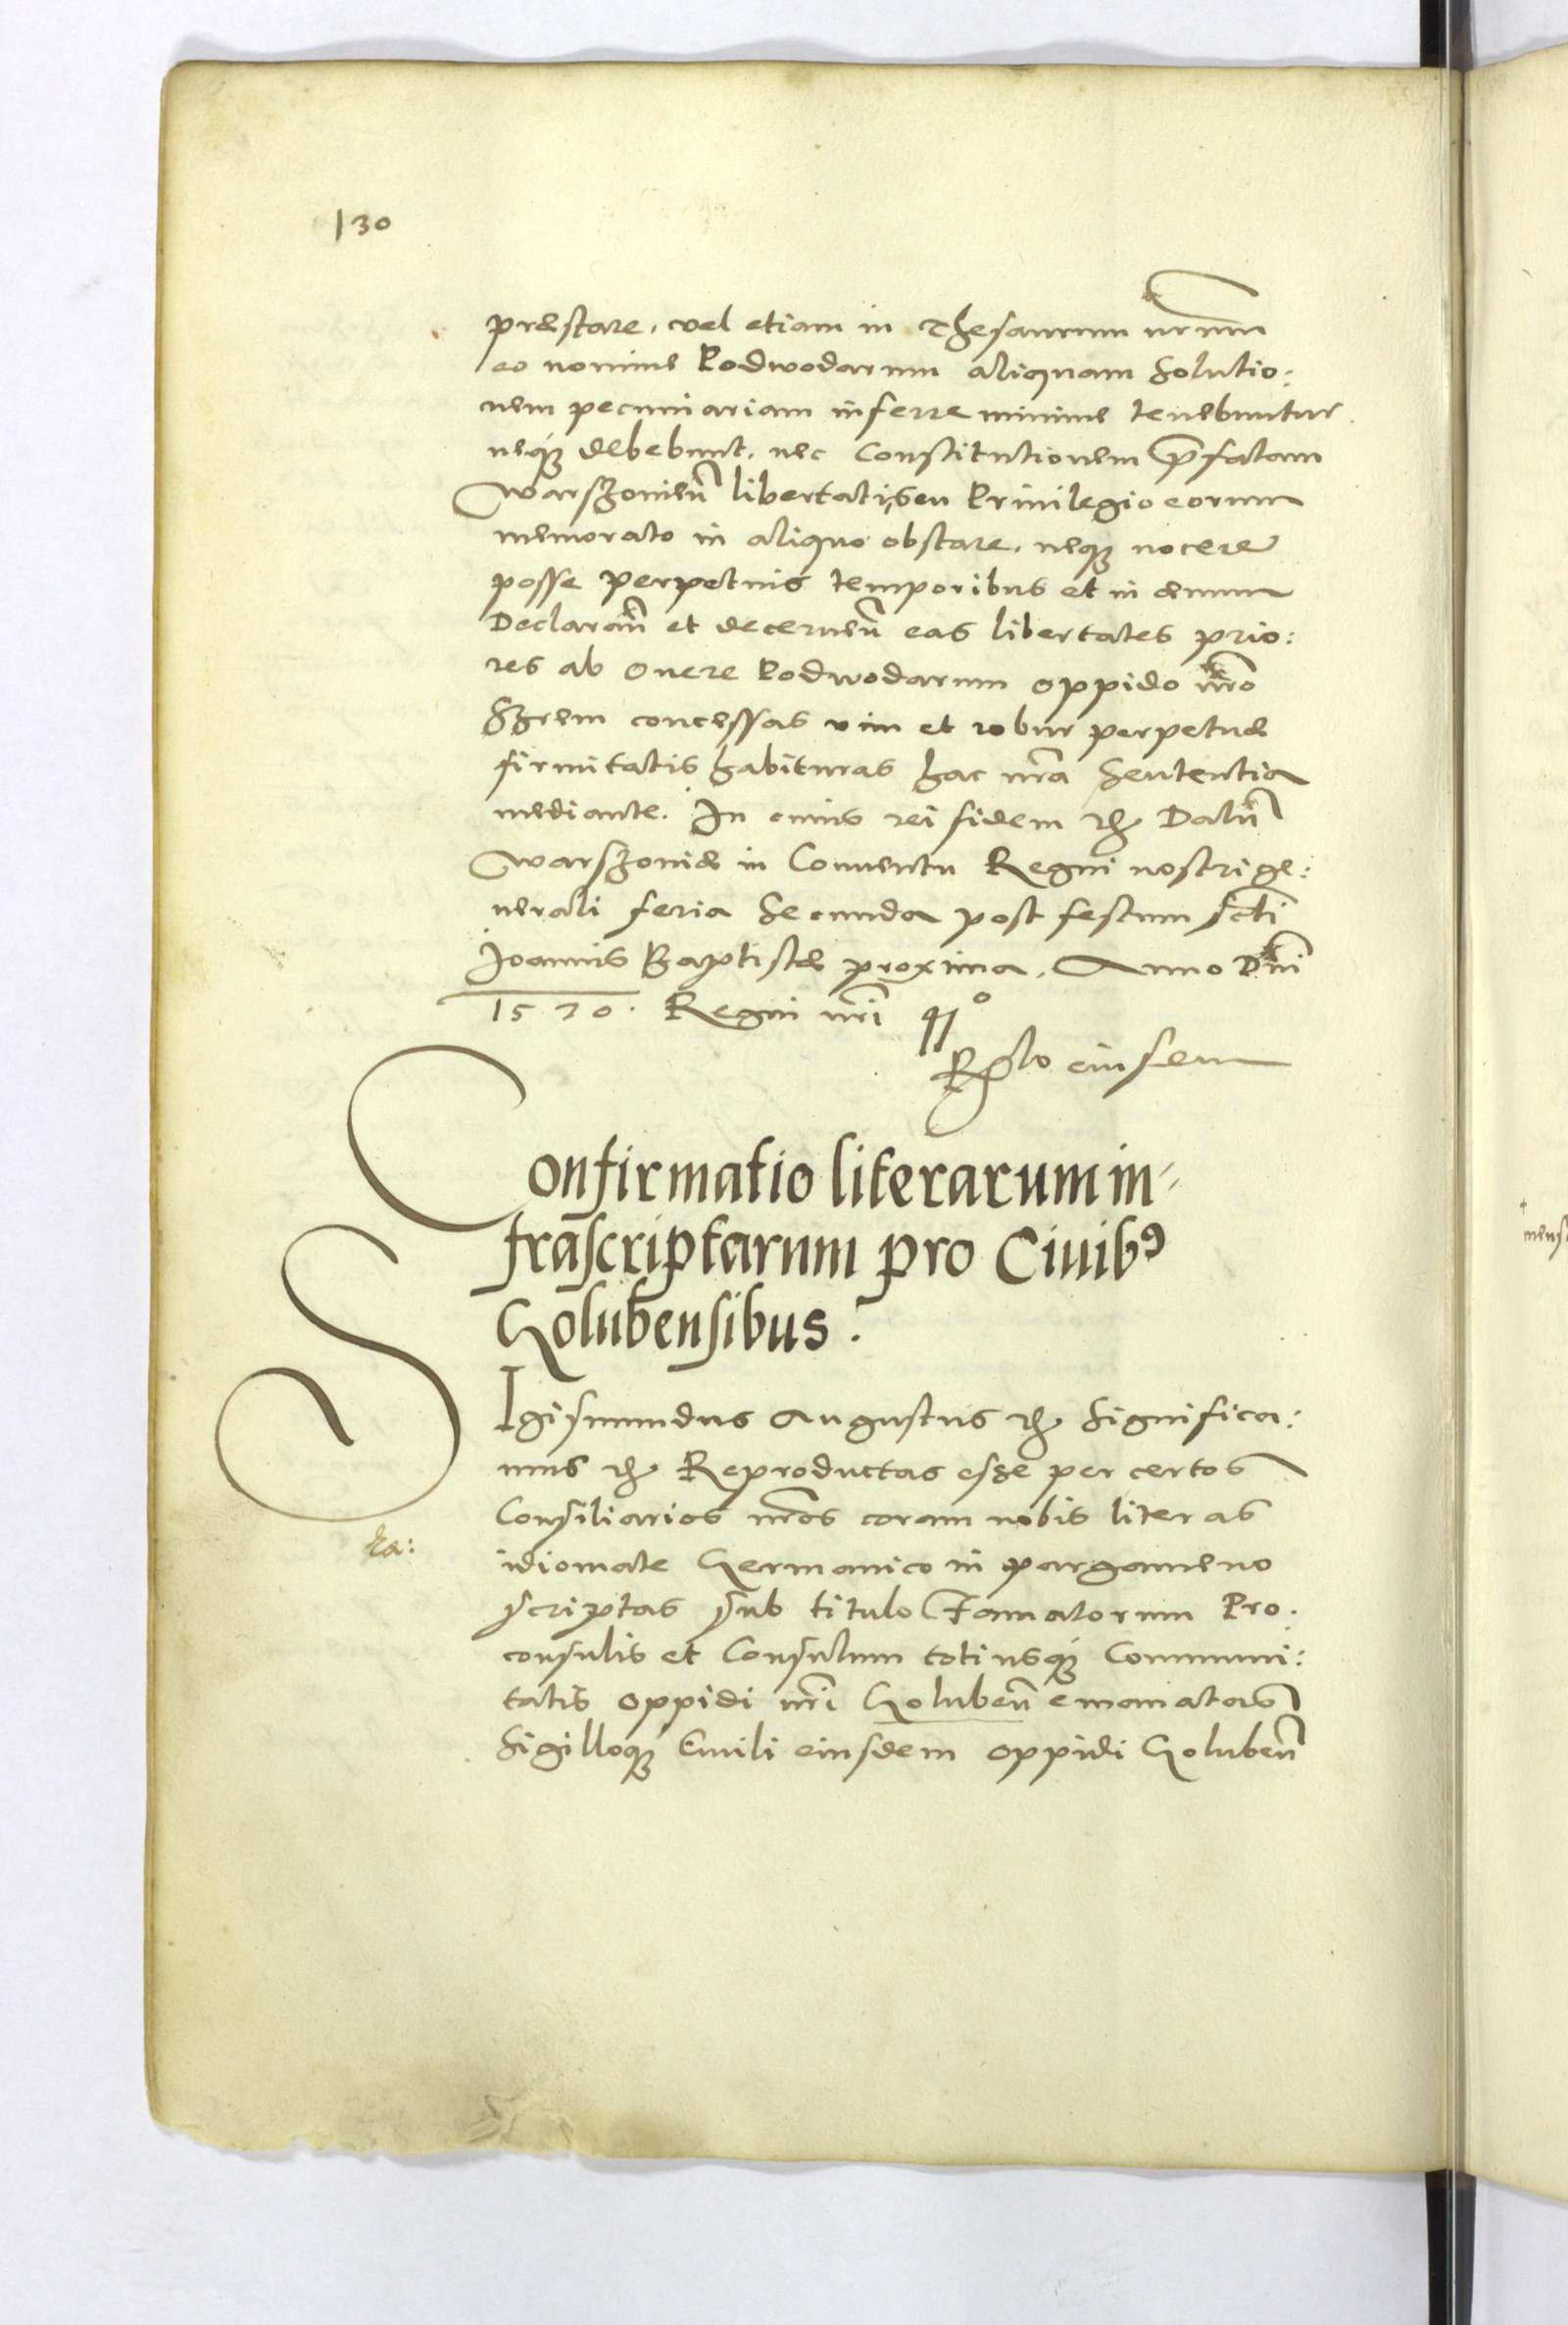 130
præstare, vel etiam in Thesaurum nrūm
eo nomine Podwodarum aliquam Solutio:
nem pecuniariam inferre minime tenebuntur
neq́ꝫ debebunt. nec Constitutionem p̄fatam
Warszouien̄ libertati, seu Priuilegio eorum
memorato in aliquo obstare. neqꝫ nocere
posse perpetuis temporibus et in æuum
Declaran̄ et decernen̄ eas libertates prio:
res ab onere Podwodarum oppido nr̄o
Szrem concessas vim et robur perpetuæ
firmitatis habituras hac nr̄a Sententia
mediante. In cuius rei fidem etc Datum̄
Warszouiæ in Conuentu Regni nostri ge:
nerali feria Secunda post festum scti
Joannis Baptistæ proxima. Anno Dn̄i
1570. Regni nr̄i 41°
Rlo eiusdem
Confirmatio literarum in-
frascriptarum pro Ciuibꝰ
Golubensibus.
SIgismundus Augustus etc Significa:
mus etc Reproductas esse per certos
Consiliarios nr̄os coram nobis literas
idiomate Germanico in pargameno
scriptas sub titulo Famatorum Pro.
consulis et Consulum totiusq́ꝫ Communi:
tatis oppidi nr̄i Goluben̄ emanatas
Sigilloqꝫ Ciuili eiusdem oppidi Goluben̄